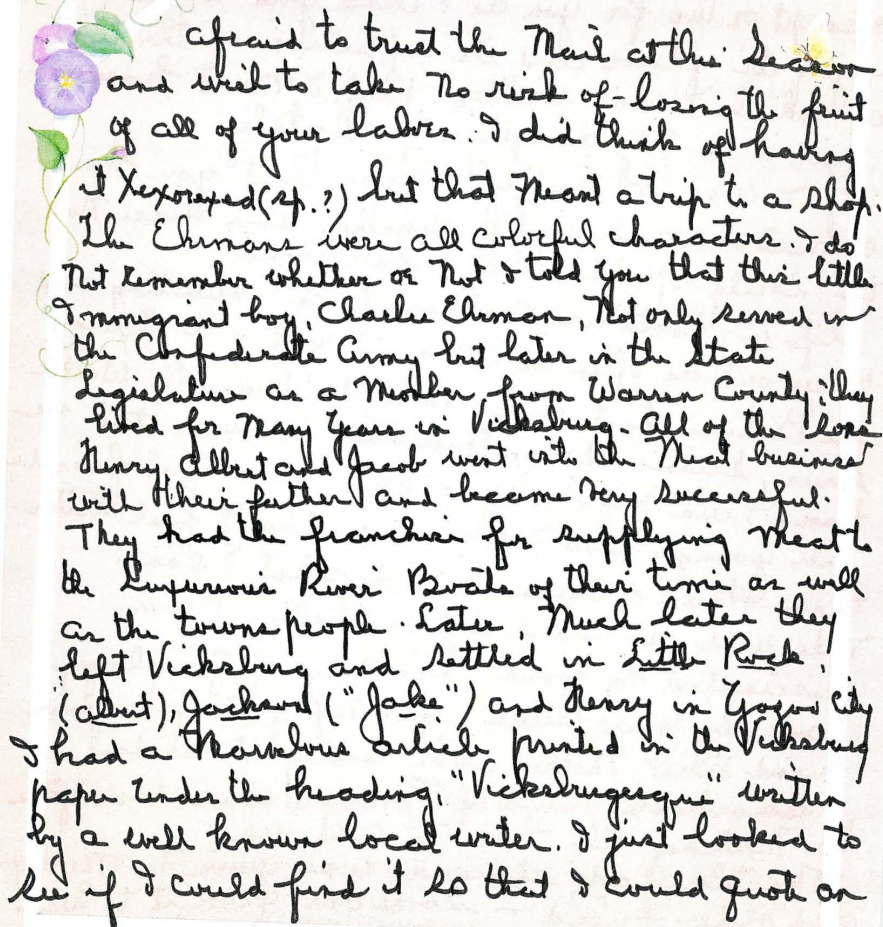 afraid to trust the Mail at this Season
and wish to take no risk of losing the fruit
of all of your labors. I did think of having
it Xexoraxed (sp.?) but that meant a trip to a shop.
The Ehrmans were all colorful characters. I do
not remember whether or not I told you that this little
Immigrant boy, Charles Ehrman, not only served in
the Confederate Army but later in the State
Legislature as a Member from Warren County; they
lived for many years in Vicksburg. All of the sons
Henry, Albert and Jacob went into the Meat business
with their father and became very successful.
They had the franchise for supplying meat to
the Luxurious River Boats of their time as well
as the towns people. Later, Much later they
left Vicksburg and settled in Little Rock,
(Albert), Jackson ("Jake") and Henry in Yazoo City
I had a Marvelous article printed in the Vicksburg
paper under the heading, "Vicksburgesque" written
by a well known local writer. I just looked to
see if I could find it so that I could quote an